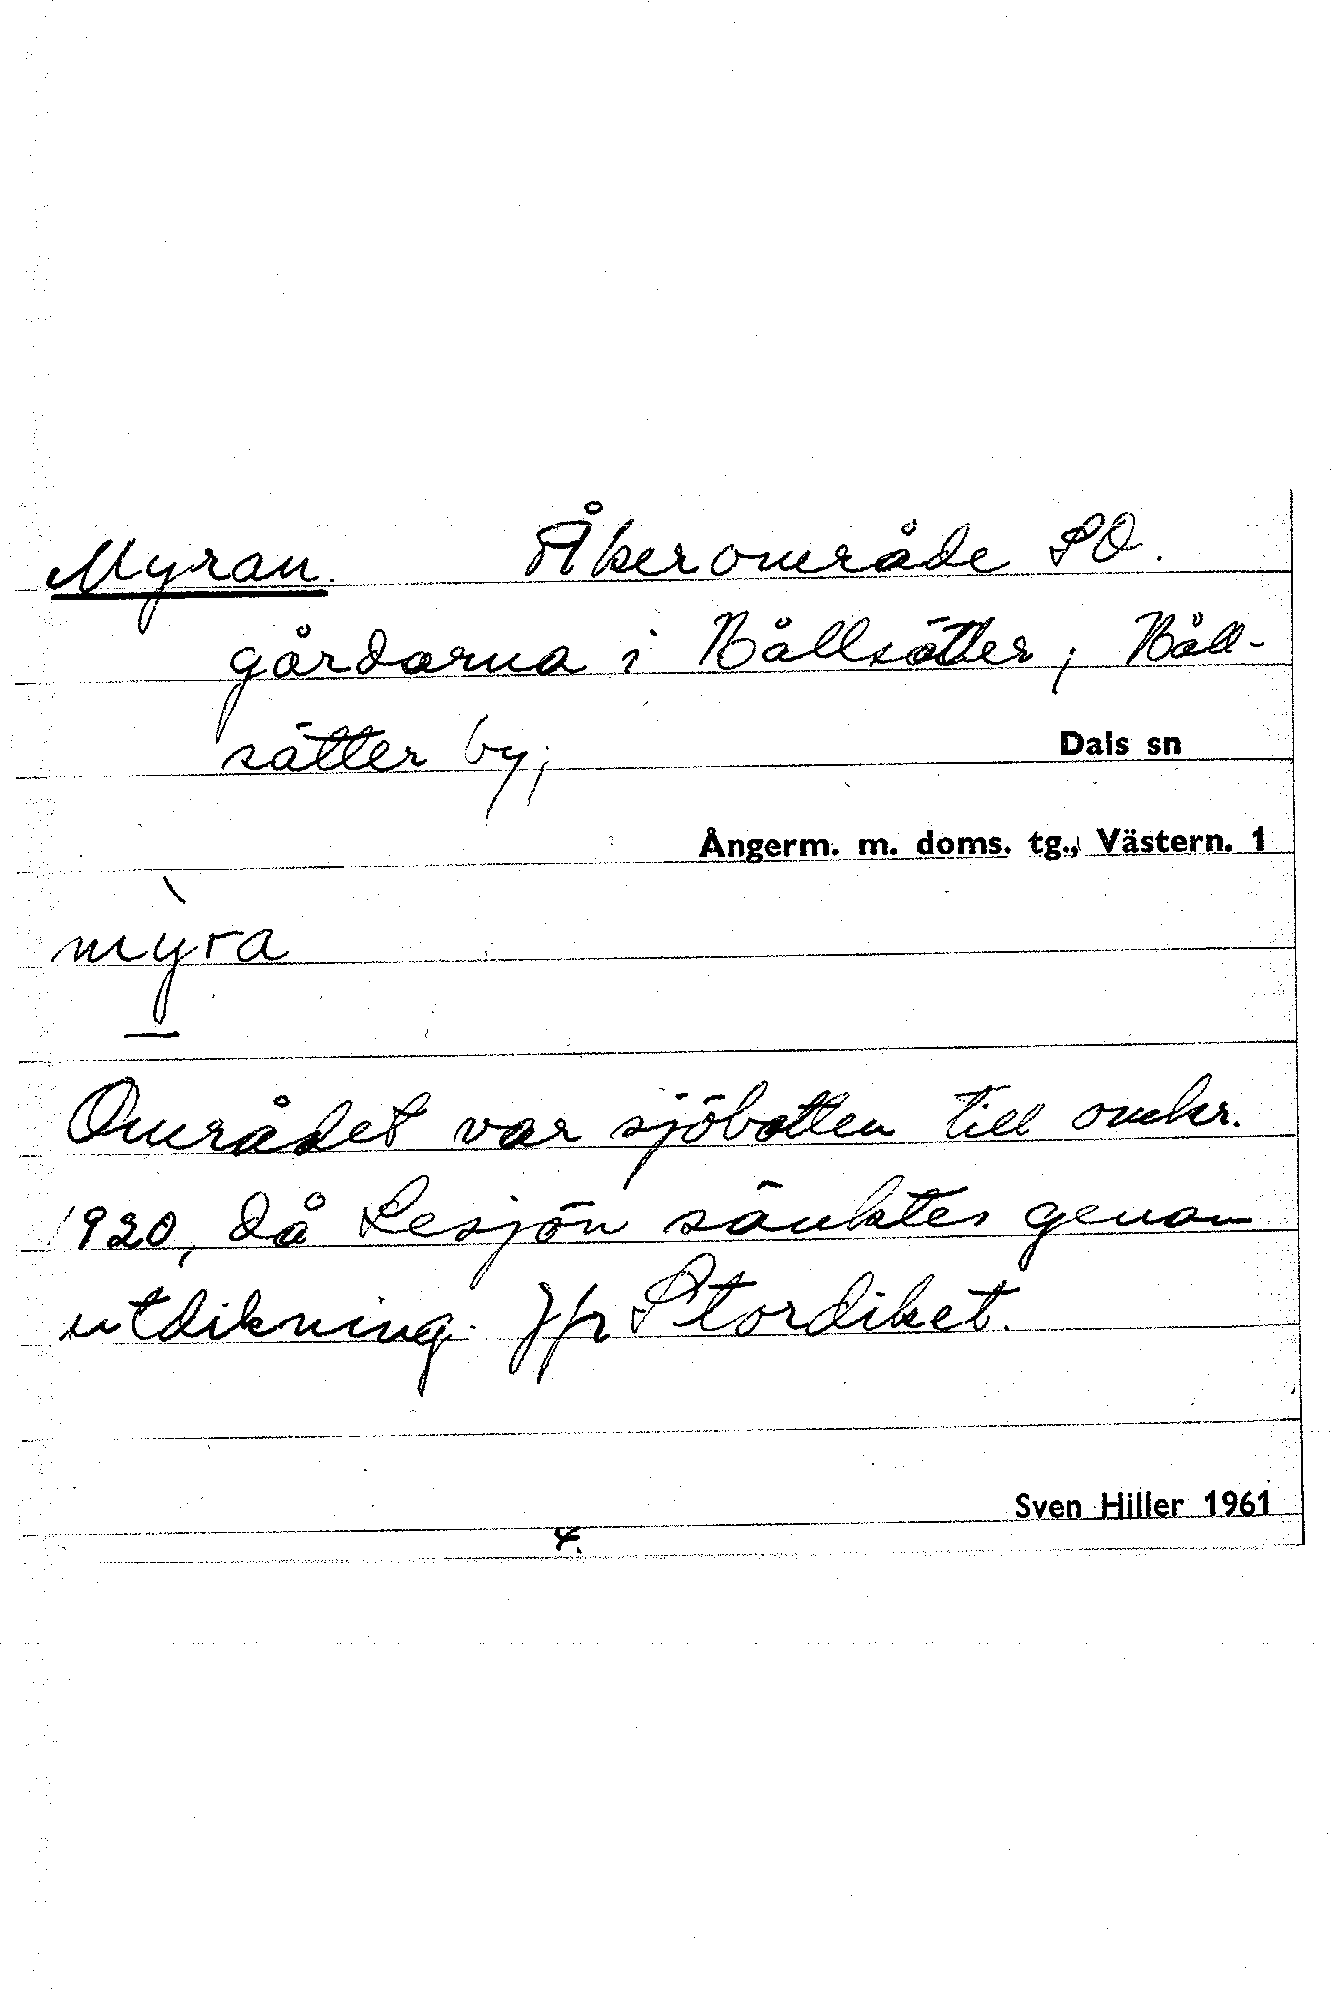 Myran. Åkerområde SO.
gårdarna i Bållsätter; Båll-
sätter by;
Dals sn
Ångerm. m. doms. tg., Västern. 1
mỳra
Området var sjöbotten till omkr.
1920, då Lesjön sänktes genom
utdikning. Jfr Stordiket.
Sven Hiller 1961
4.